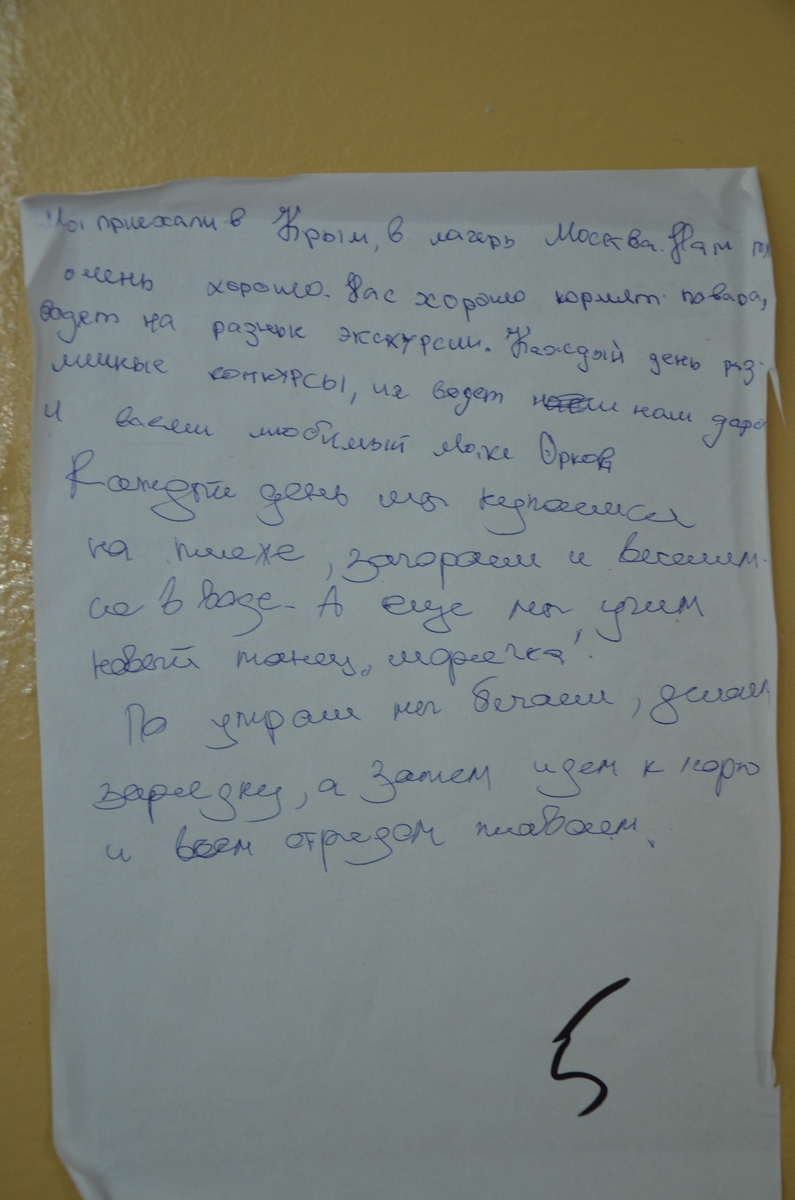 Мы приехали в Крым, в лагерь Москва. Нам
очень хорошо. Нас хорошо кормят повара,
водет на разные экскурсии. Каждый день раз-
личные конкурсы, их ведет наш
и всеми любимый
Каждый день мы купаемся
на пляже, загораем и веселим-
ся в воде. А еще мы учим
новый танец „морячка".
По утрам мы бегаем, делаем
зарядку, а затем идем к морю
и всем отрядом плаваем.
5